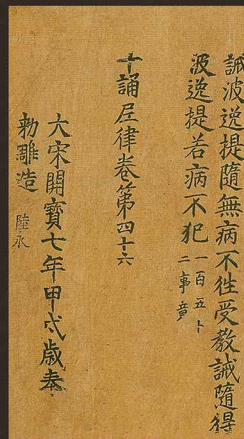 誡波逸提隨無病不往受教誡隨得
波逸提若病不犯 一百五十
二事竟
十誦尼律卷第四十六
大宋開寶七年甲戌歲奉
勑雕造 陸永